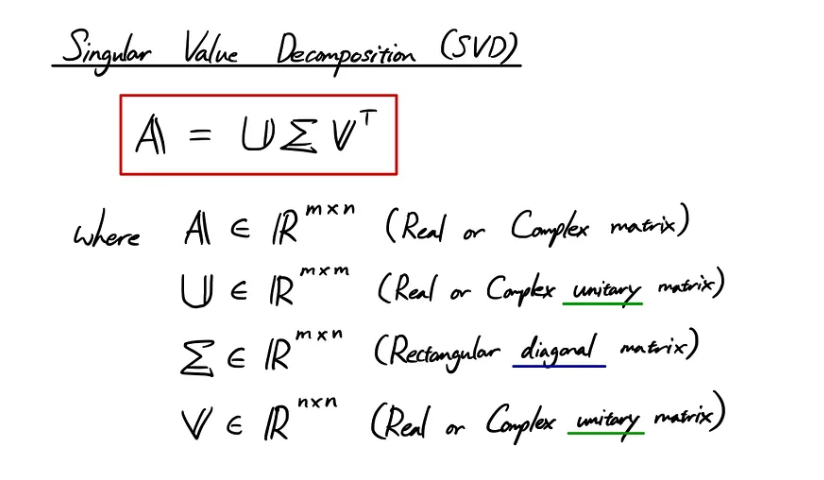 Singular Value Decomposition (SVD)
A = U Σ Vᵀ
where A ∈ ℝᵐˣⁿ (Real or Complex matrix)
U ∈ ℝᵐˣᵐ (Real or Complex unitary matrix)
Σ ∈ ℝᵐˣⁿ (Rectangular diagonal matrix)
V ∈ ℝⁿˣⁿ (Real or Complex unitary matrix)